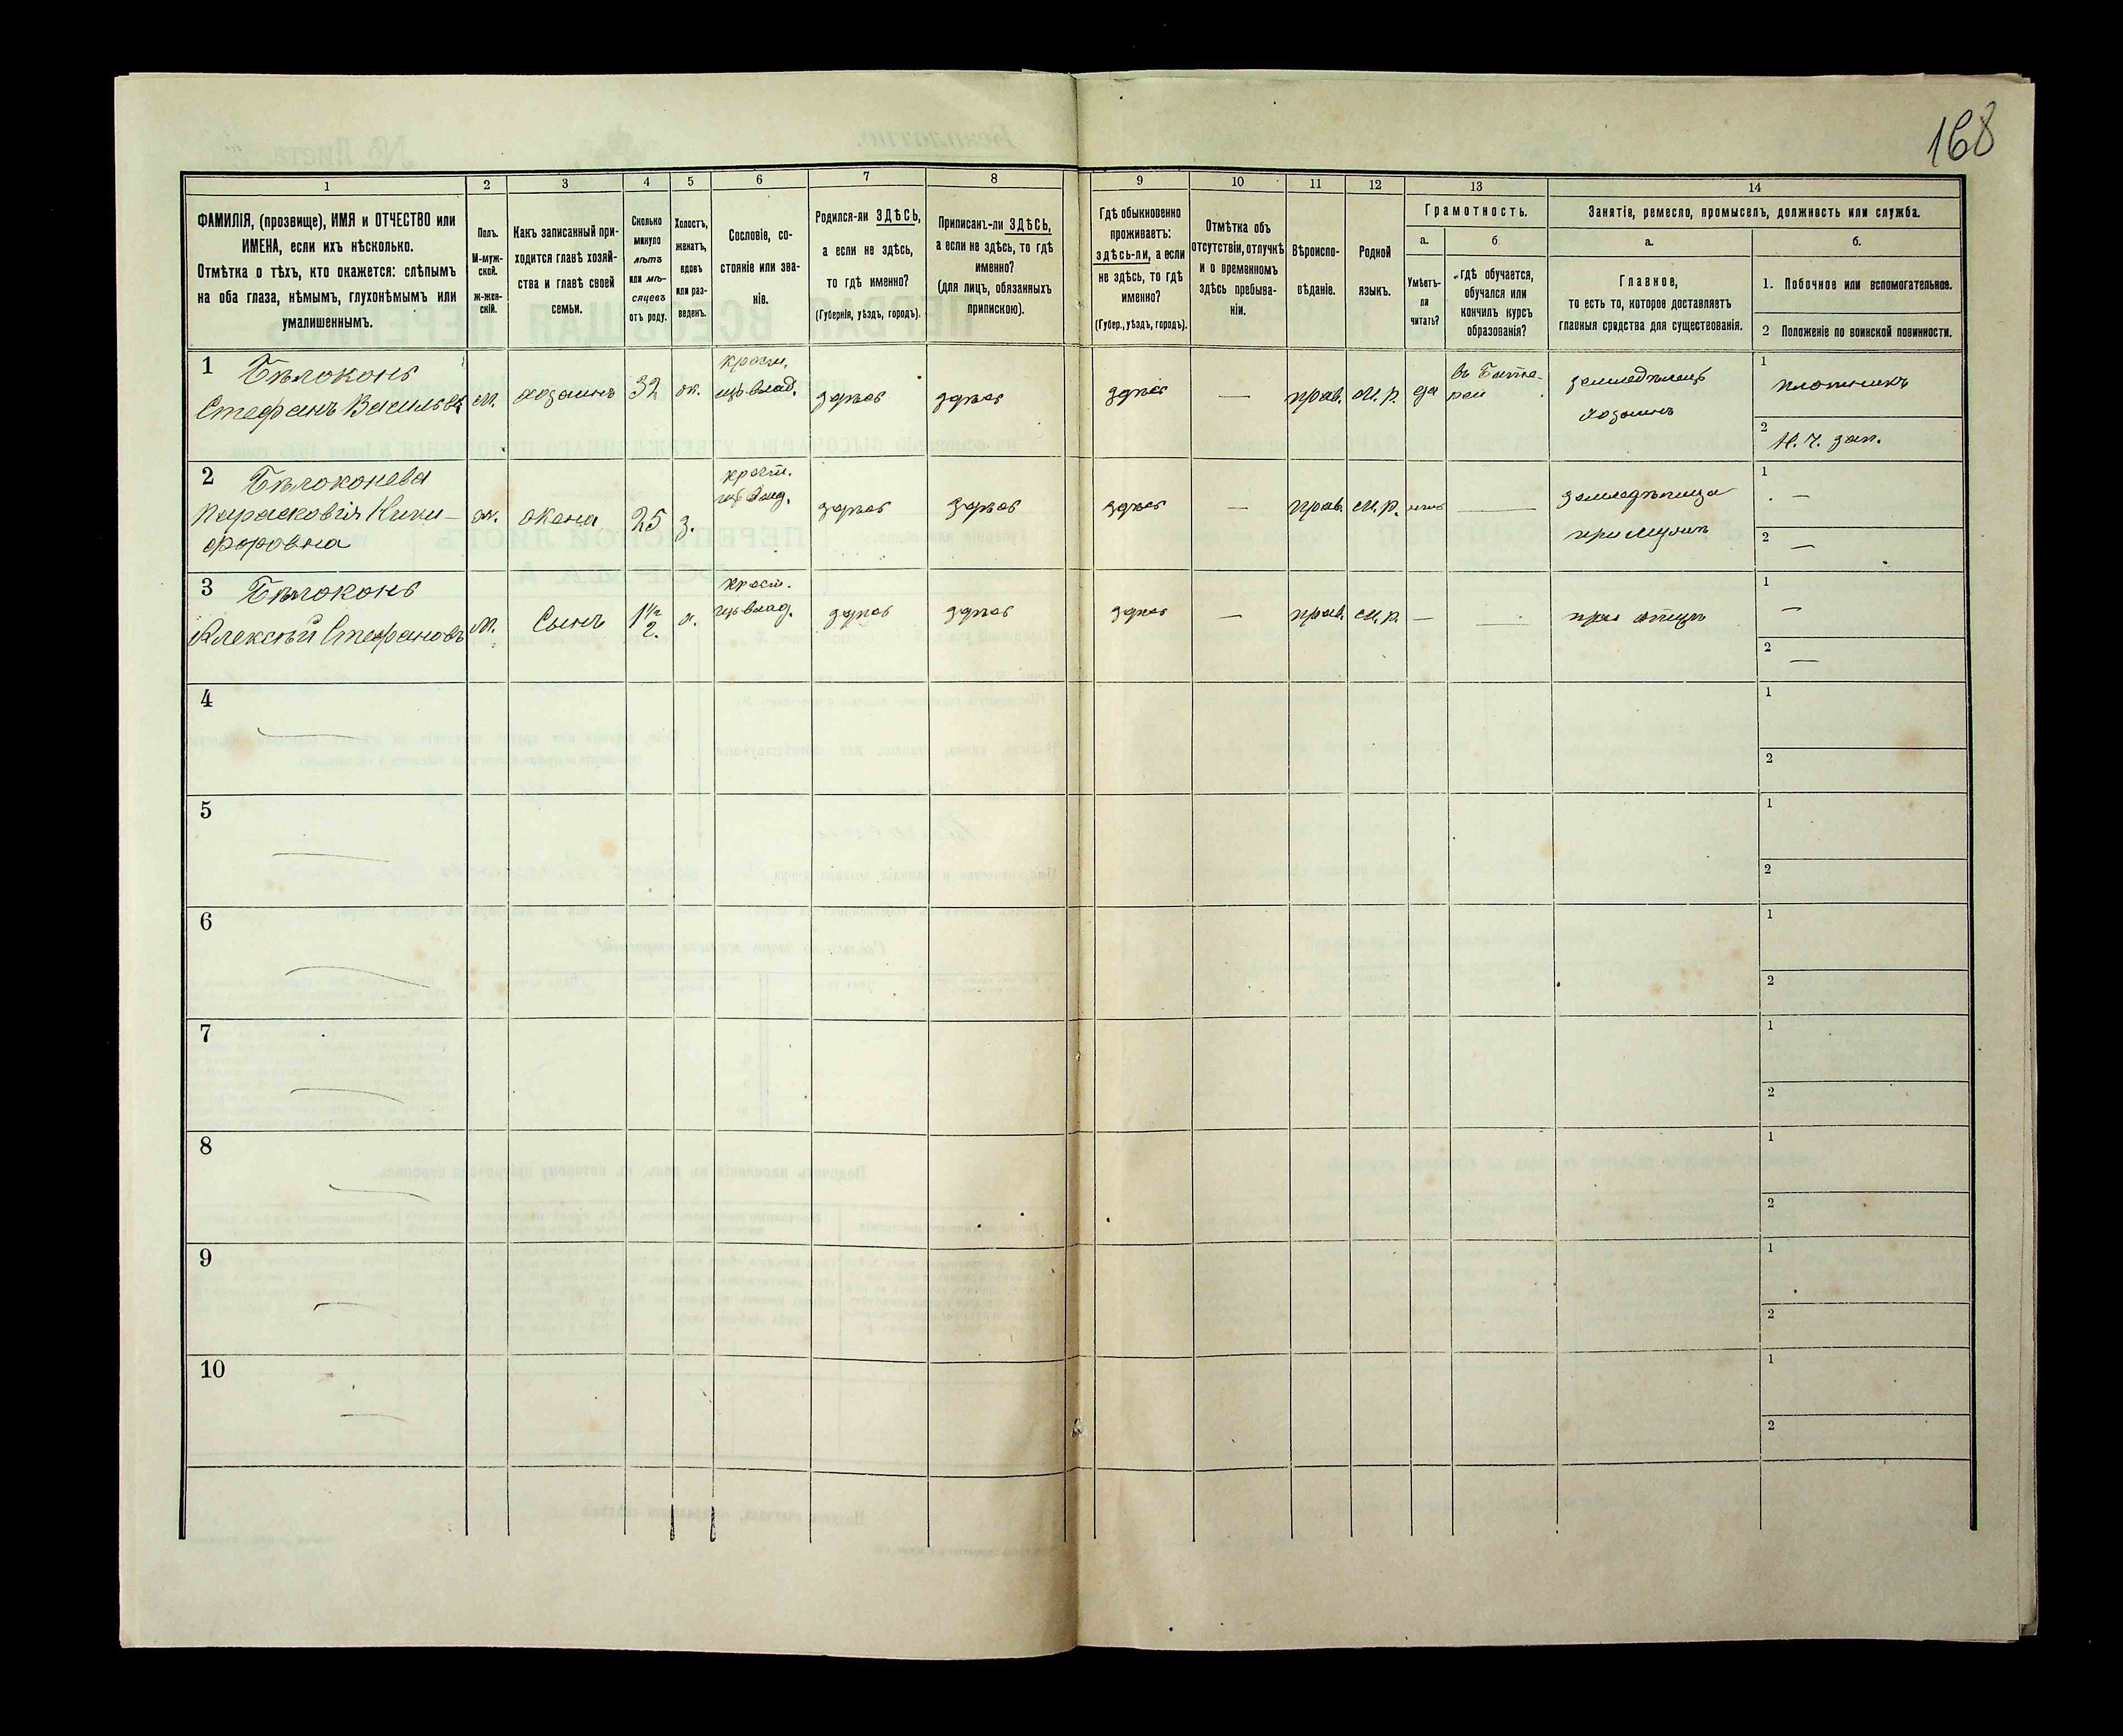 168
1
2
3
4
5
6
7
8
9
10
11
12
13
14
ФАМИЛІЯ, (прозвище), ИМЯ и ОТЧЕСТВО или
ИМЕНА, если ихъ нѣсколько.
Отмѣтка о тѣхъ, кто окажется: слѣпымъ
на оба глаза, нѣмымъ, глухонѣмымъ или
умалишеннымъ.
Полъ.
М-муж-
ской.
Ж-жен-
скій.
Какъ записанный при-
ходится главѣ хозяй-
ства и главѣ своей
семьи.
Сколько
минуло
лѣтъ
или мѣ-
сяцевъ
отъ роду.
Холостъ,
женатъ,
вдовъ
или раз-
веденъ.
Сословіе, со-
стояніе или зва-
ніе.
Родился-ли ЗДѢСЬ,
а если не здѣсь,
то гдѣ именно?
(Губернія, уѣздъ, городъ).
Приписанъ-ли ЗДѢСЬ,
а если не здѣсь, то гдѣ
именно?
(для лицъ, обязанныхъ
припискою).
Гдѣ обыкновенно
проживаетъ:
здѣсь-ли, а если
не здѣсь, то гдѣ
именно?
(Губер., уѣздъ, городъ).
Отмѣтка объ
отсутствіи, отлучкѣ
и о временномъ
здѣсь пребыва-
ніи.
Вѣроиспо-
вѣданіе.
Родной
языкъ.
Грамотность.
а.
Умѣетъ-
ли
читать?
б.
гдѣ обучается,
обучался или
кончилъ курсъ
образованія?
Занятіе, ремесло, промыселъ, должность или служба.
а.
Главное,
то есть то, которое доставляетъ
главныя средства для существованія.
б.
1. Побочное или вспомогательное.
2 Положеніе по воинской повинности.
1 Бѣлоконь
Стефанъ Васильевъ
м.
хозяинъ
32
ж.
крест.
щ. влад.
здѣсь
здѣсь
здѣсь
—
прав.
м. р.
да
въ Бата-
реи
земледѣлецъ
хозяинъ
1
плотникъ
2
Н. Ч. зап.
2 Бѣлоконева
Парасковія Ники-
форовна
ж.
жена
25
з.
крест.
здѣсь
здѣсь
здѣсь
—
прав.
м. р.
нѣтъ
—
при мужѣ
1
—
2
—
3 Бѣлоконь
Алексѣй Стефановъ
м.
Сынъ
1 1/2
х.
крест.
влад.
здѣсь
здѣсь
здѣсь
—
прав.
м. р.
—
—
при отцѣ
1
—
2
—
4
—
1
2
5
—
1
2
6
—
1
2
7
—
1
2
8
—
1
2
9
—
1
2
10
—
1
2